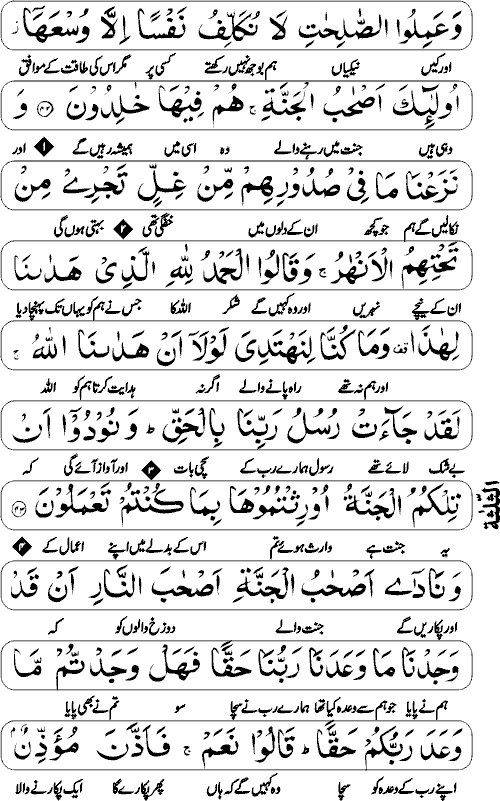 وَعَمِلُوا الصّٰلِحٰتِ لَا نُكَلِّفُ نَفْسًا اِلَّا وُسْعَهَاۤ
اور کیں نیکیاں ہم بوجھ نہیں رکھتے کسی پر مگر اس کی طاقت کے موافق
اُولٰٓئِكَ اَصْحٰبُ الْجَنَّةِ ۚ هُمْ فِيْهَا خٰلِدُوْنَ ﴿۴۲﴾ وَ
وہی ہیں جنت میں رہنے والے وہ اسی میں ہمیشہ رہیں گے ۱ اور
نَزَعْنَا مَا فِيْ صُدُوْرِهِمْ مِّنْ غِلٍّ تَجْرِيْ مِنْ
نکالیں گے ہم جو کچھ ان کے دلوں میں خفگی تھی ۲ بہتی ہوں گی
تَحْتِهِمُ الْاَنْهٰرُ ۚ وَقَالُوا الْحَمْدُ لِلّٰهِ الَّذِيْ هَدٰىنَا
ان کے نیچے نہریں اور وہ کہیں گے شکر اللہ کا جس نے ہم کو یہاں تک پہنچا دیا
لِهٰذَا ۫ وَمَا كُنَّا لِنَهْتَدِيَ لَوْلَاۤ اَنْ هَدٰىنَا اللّٰهُ ۚ
اور ہم نہ تھے راہ پانے والے اگر نہ ہدایت کرتا ہم کو اللہ
لَقَدْ جَآءَتْ رُسُلُ رَبِّنَا بِالْحَقِّ ؕ وَنُوْدُوْۤا اَنْ
بے شک لائے تھے رسول ہمارے رب کے سچی بات ۳ اور آواز آئے گی کہ
تِلْكُمُ الْجَنَّةُ اُوْرِثْتُمُوْهَا بِمَا كُنْتُمْ تَعْمَلُوْنَ ﴿۴۳﴾
یہ جنت ہے وارث ہوئے تم اس کے بدلے میں اپنے اعمال کے ۴
وَنَادٰۤى اَصْحٰبُ الْجَنَّةِ اَصْحٰبَ النَّارِ اَنْ قَدْ
اور پکاریں گے جنت والے دوزخ والوں کو کہ
وَجَدْنَا مَا وَعَدَنَا رَبُّنَا حَقًّا فَهَلْ وَجَدْتُّمْ مَّا
ہم نے پایا جو ہم سے وعدہ کیا تھا ہمارے رب نے سچا سو تم نے بھی پایا
وَعَدَ رَبُّكُمْ حَقًّا ؕ قَالُوْا نَعَمْ ۚ فَاَذَّنَ مُؤَذِّنٌۢ
اپنے رب کے وعدہ کو سچا وہ کہیں گے کہ ہاں پھر پکارے گا ایک پکارنے والا
الثلٰثة